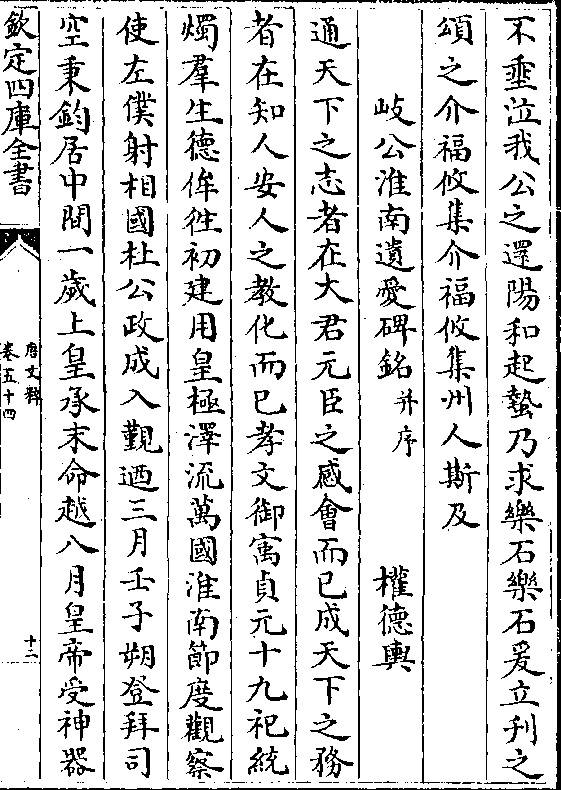 不垂泣我公之還陽和起蟄乃求樂石樂石爰立刋之
頌之介福攸集介福攸集州人斯及
岐公淮南遺愛碑銘并序　權德輿
通天下之志者在大君元臣之感會而已成天下之務
者在知人安人之教化而已孝文御寓貞元十九祀統
燭羣生德侔徃初建用皇極澤流萬國淮南節度觀察
使左僕射相國杜公政成入觐廼三月壬子朔登拜司
空秉鈞居中間一歲上皇承末命越八月皇帝受神器
欽定四庫全書
唐文粹
卷五十四
十二